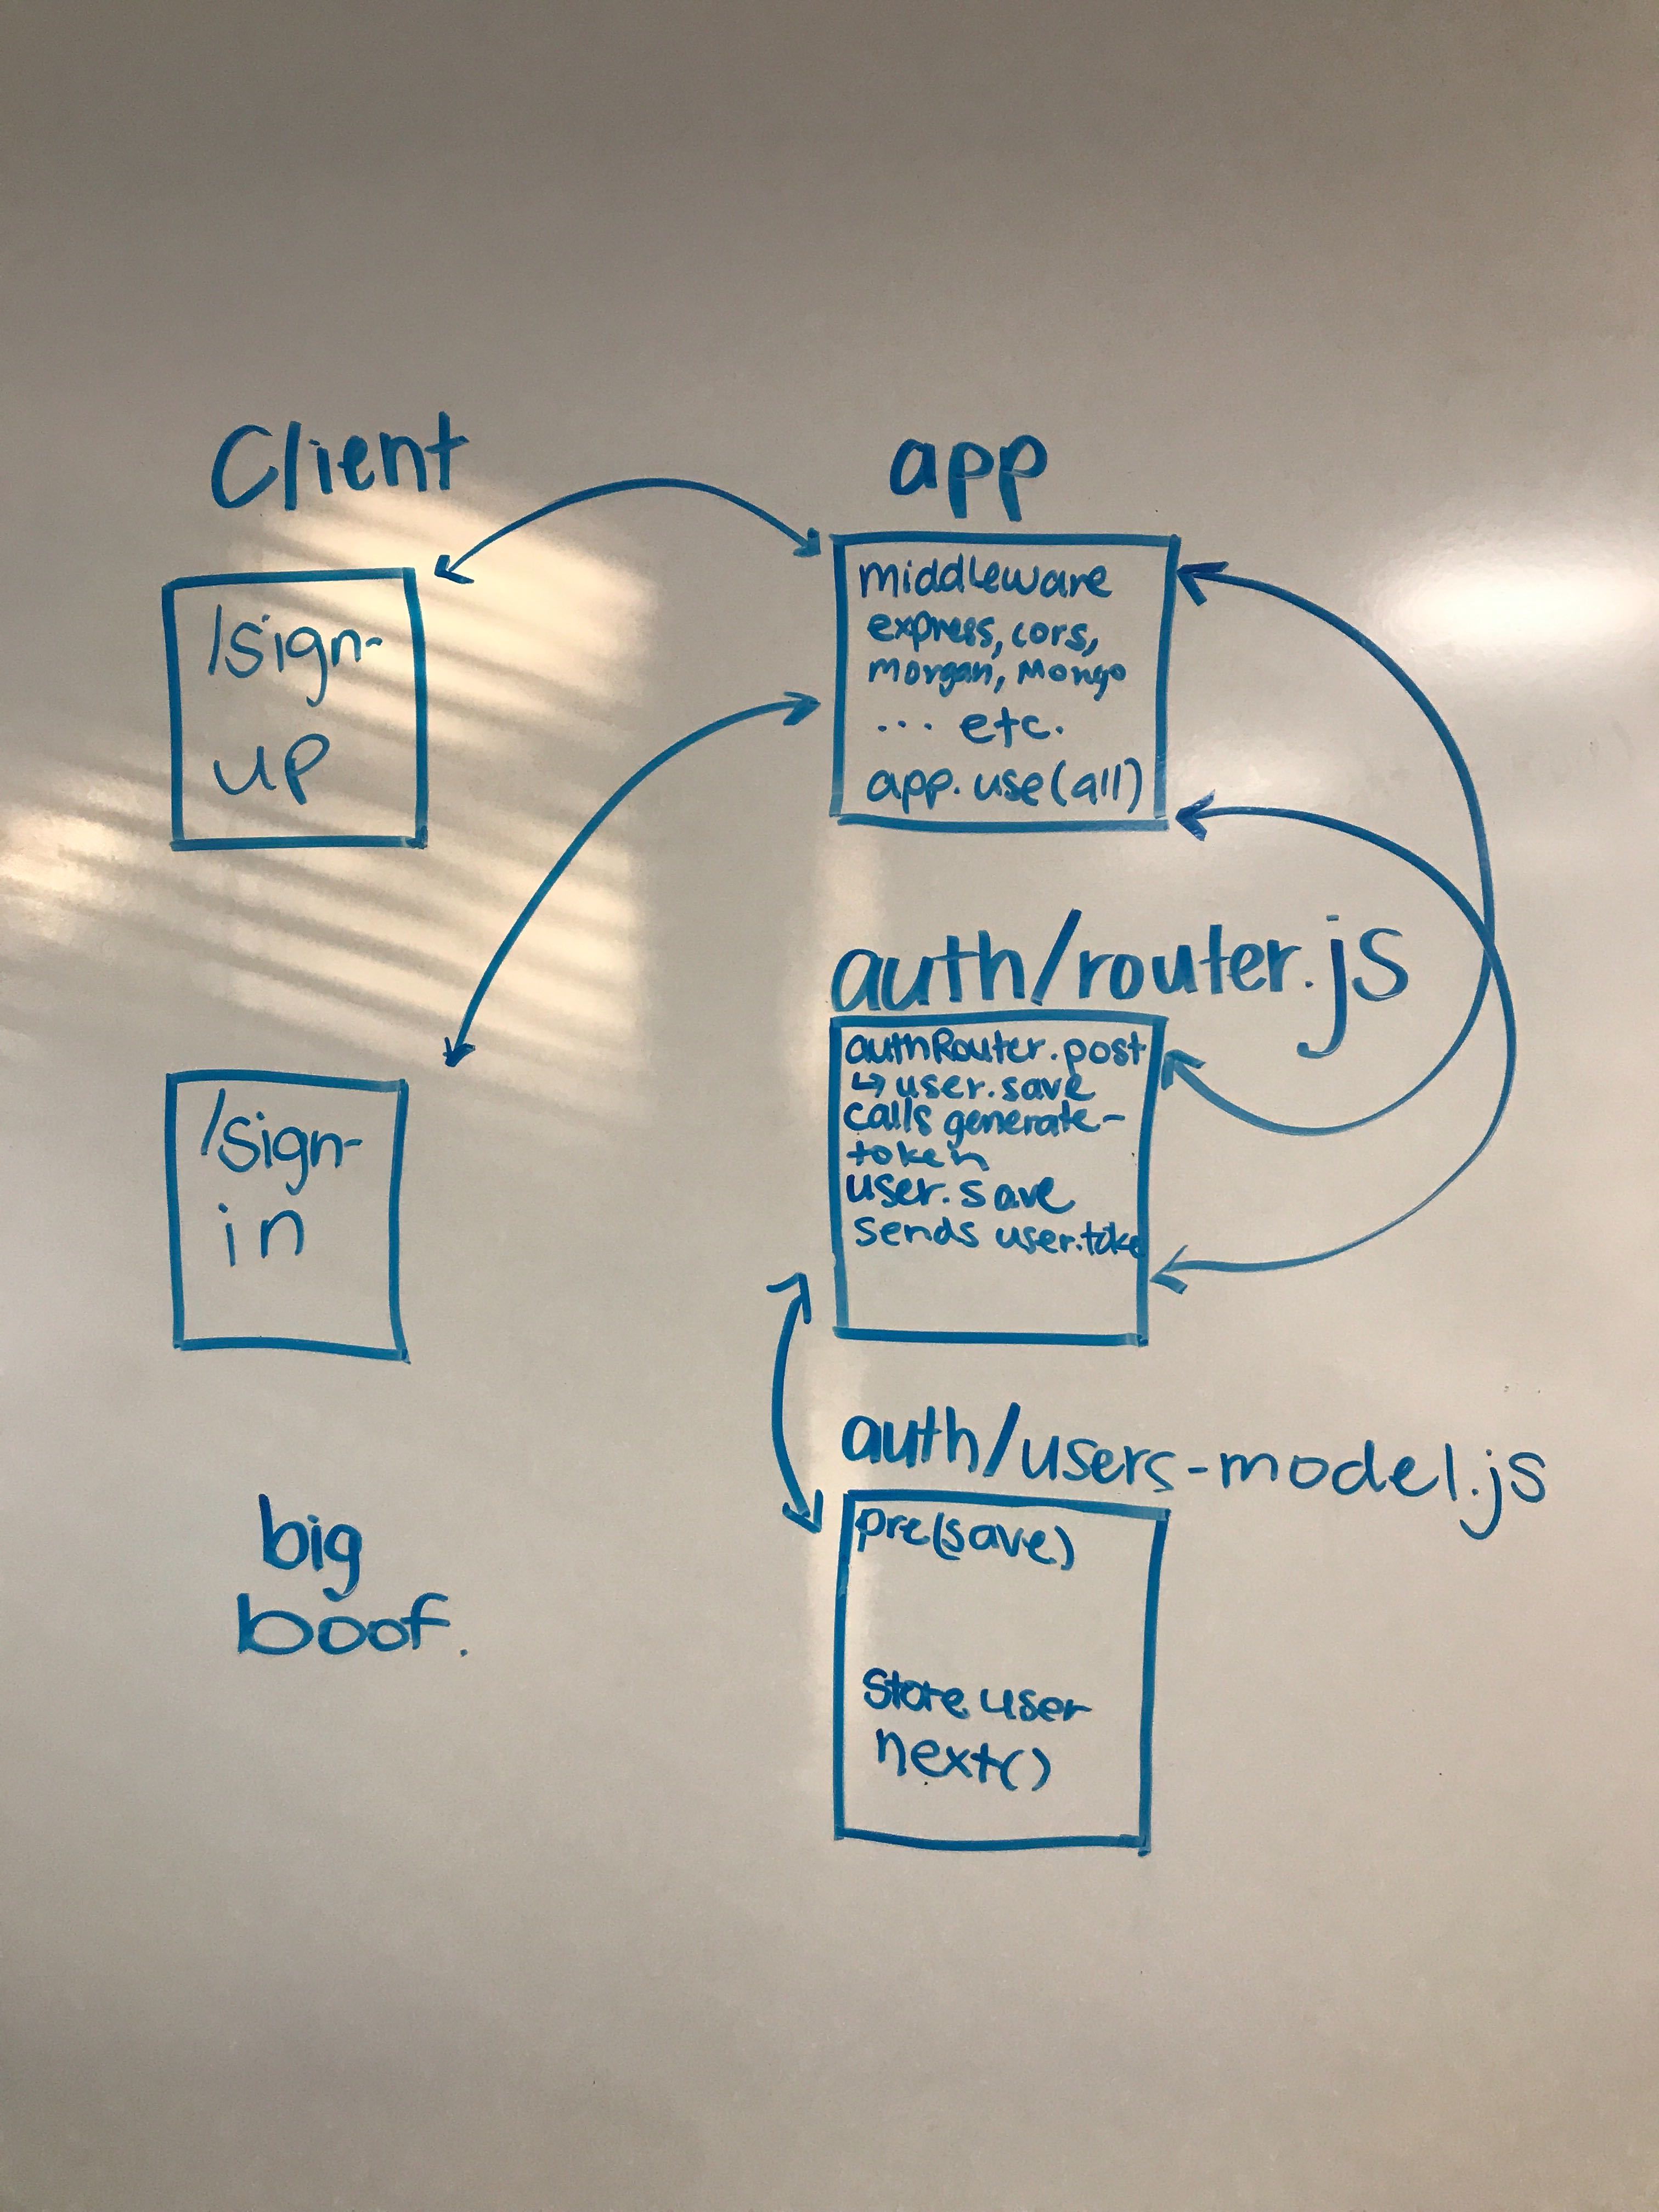 Client
/sign-
up
/sign-
in
big
boof.
app
middleware
express, cors,
morgan, Mongo
... etc.
app.use(all)
auth/router.js
authRouter.post
↳ user.save
calls generate-
token
user.save
sends user.toke
auth/users-model.js
pre(save)
Store user
next()